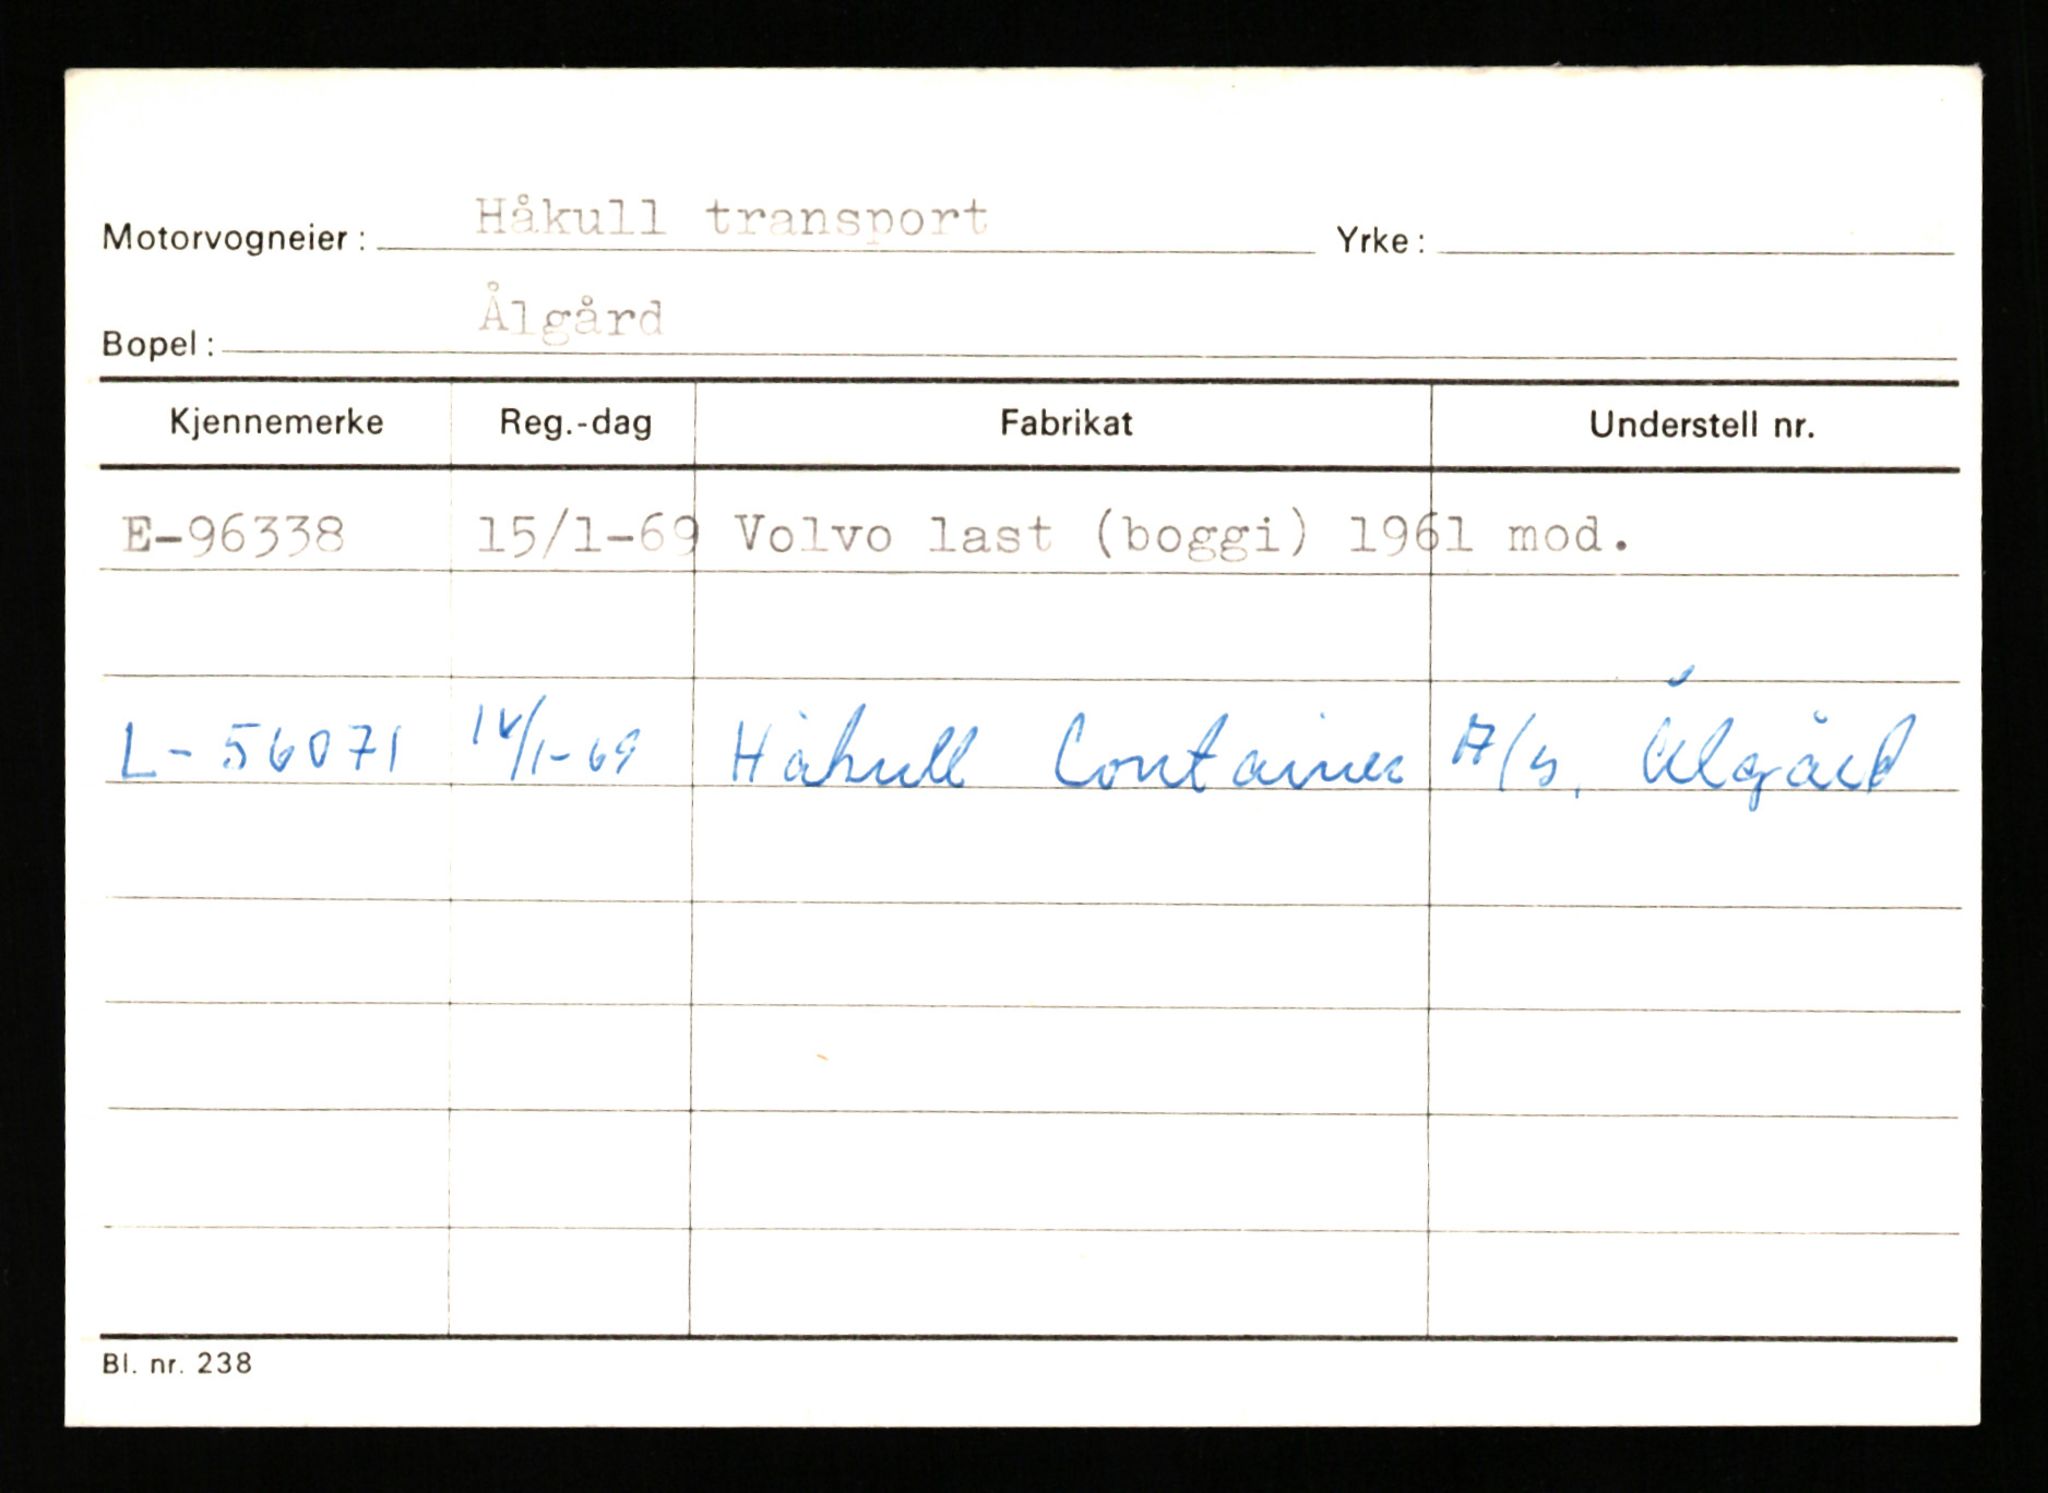 Motorvogneier: Håkull transport Yrke:
Bopel: Ålgård
Kjennemerke Reg.-dag Fabrikat Understell nr.
E-96338 15/1-69 Volvo last (boggi) 1961 mod.
L-56071 /1-69 Håkull Container A/S, Ålgård
Bl. nr. 238